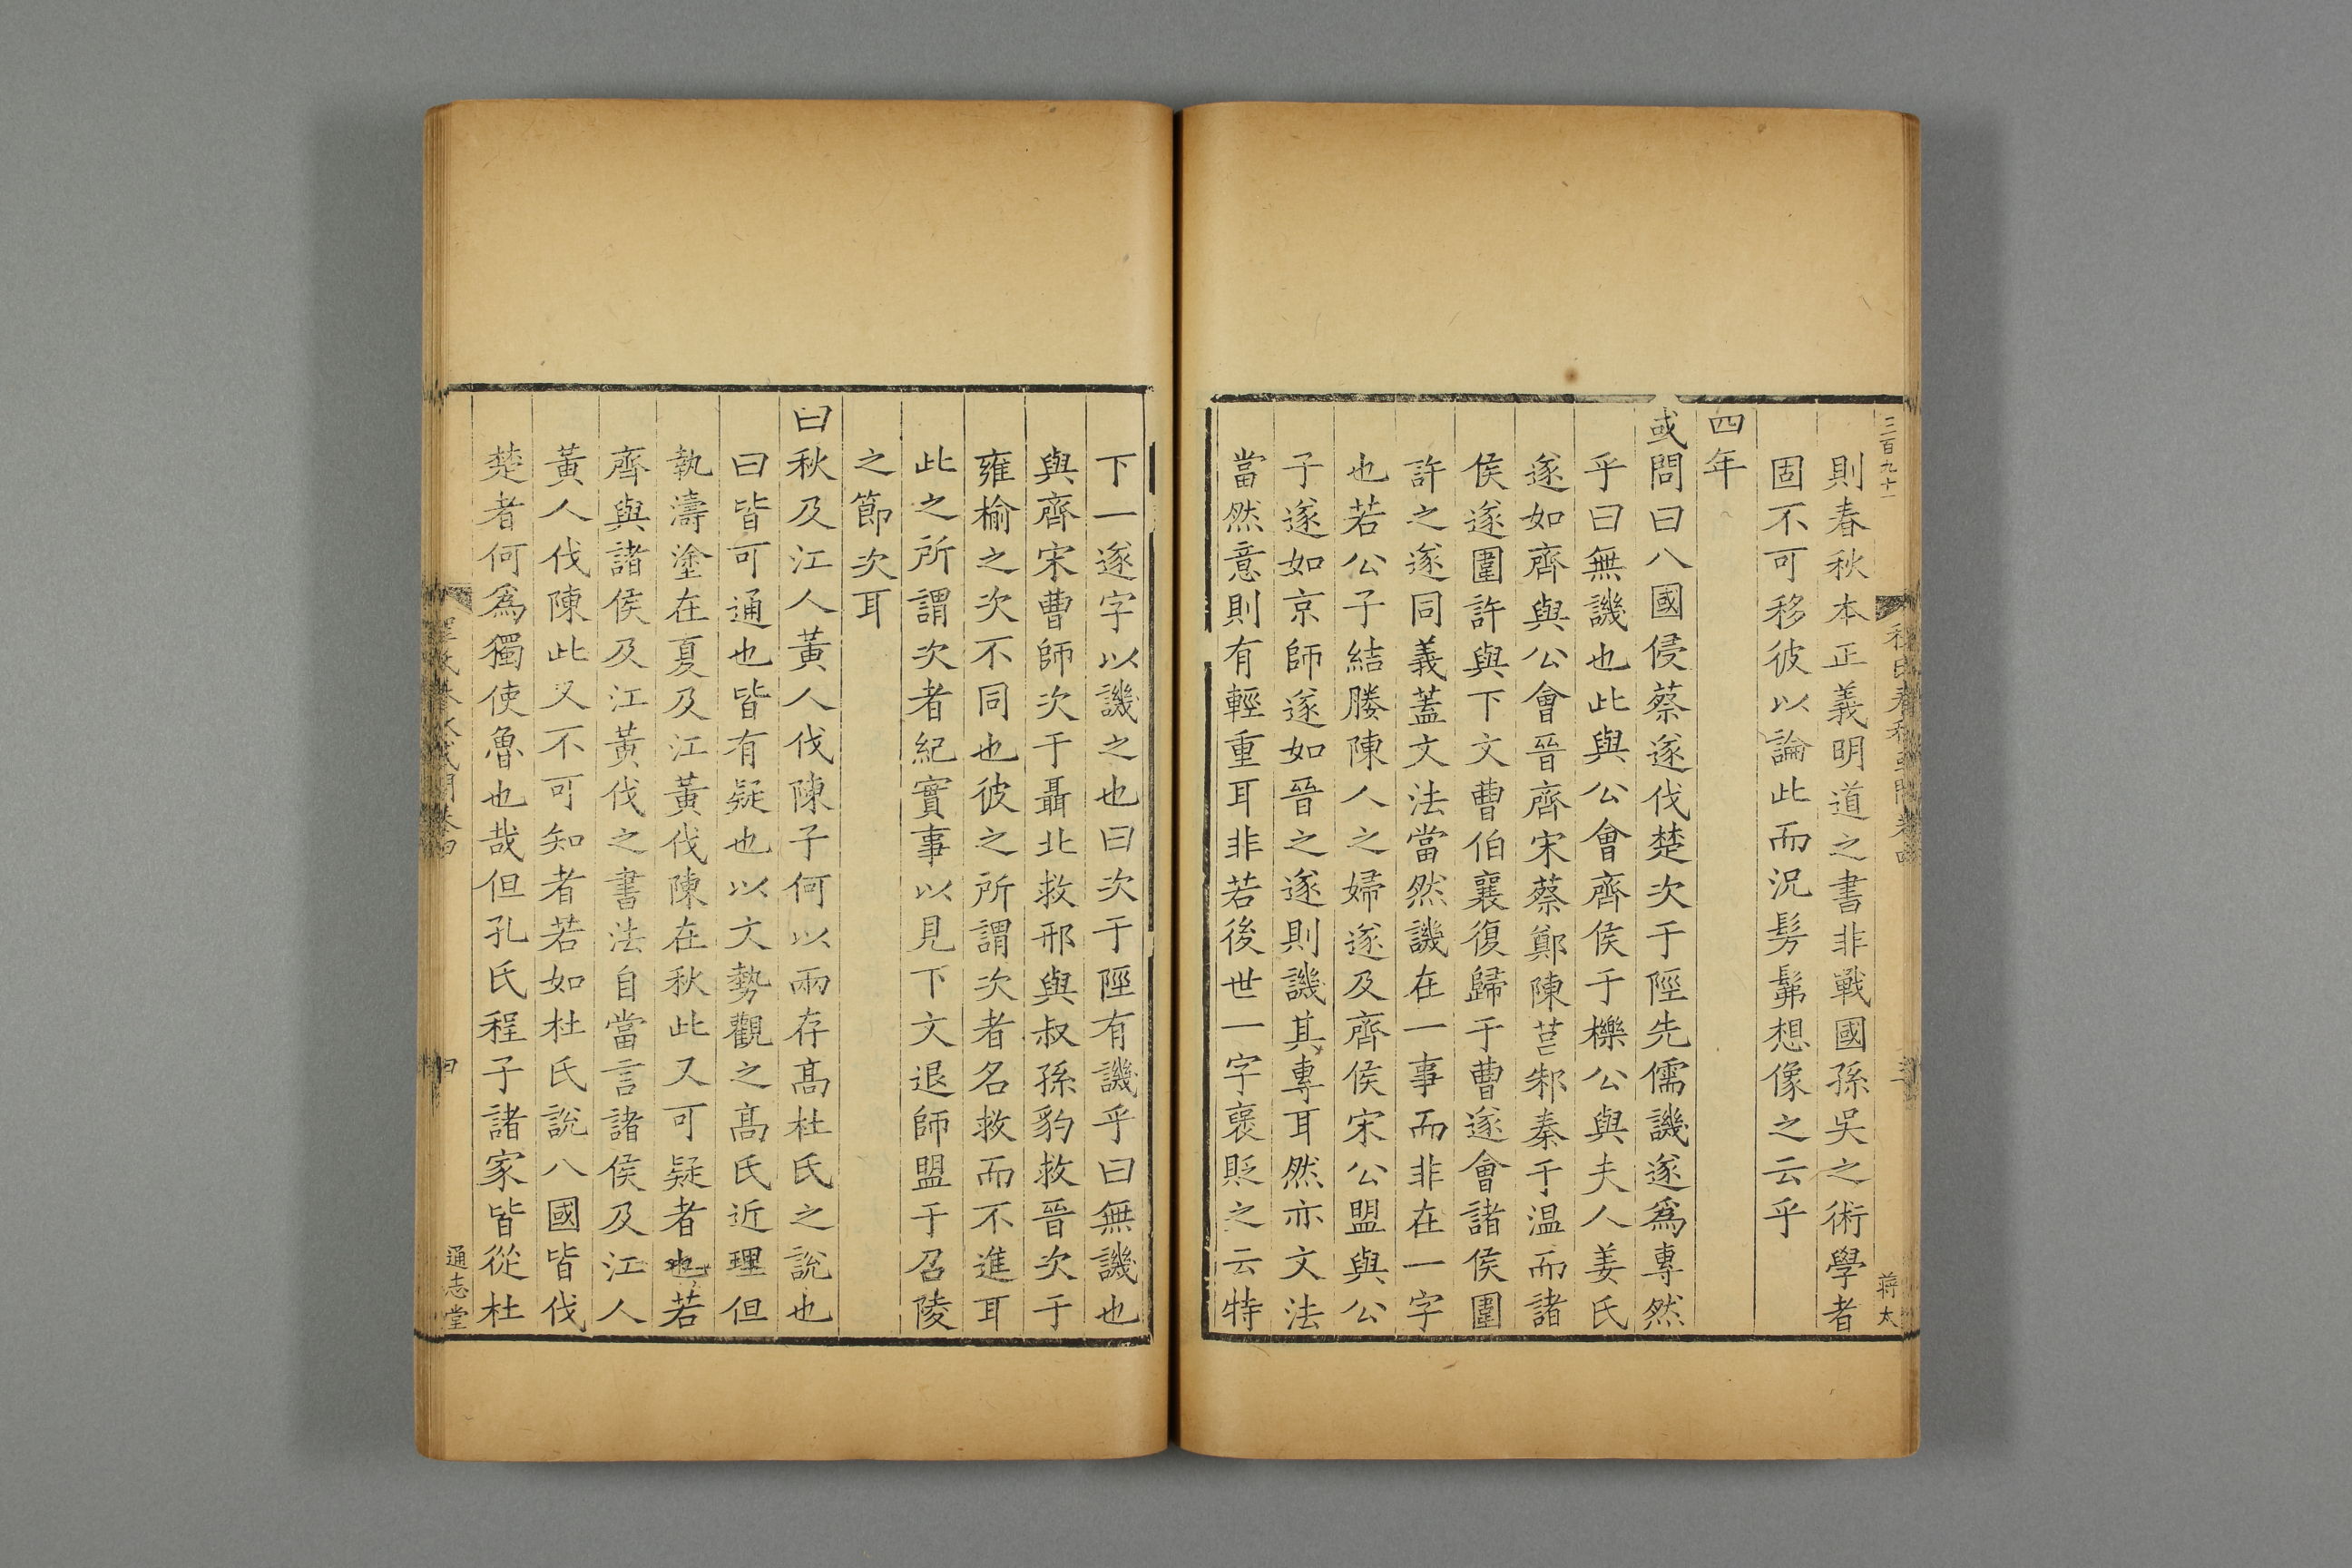 三百九十一
蔣太
則春秋本正義明道之書非戰國孫吳之術學者
固不可移彼以論此而況髣髴想像之云乎
四年
或問曰八國侵蔡遂伐楚次于陘先儒譏遂爲專然
乎曰無譏也此與公會齊侯于櫟公與夫人姜氏
遂如齊與公會晉齊宋蔡鄭陳莒邾秦于温而諸
侯遂圍許與下文曹伯襄復歸于曹遂會諸侯圍
許之遂同義蓋文法當然譏在一事而非在一字
也若公子結媵陳人之婦遂及齊侯宋公盟與公
子遂如京師遂如晉之遂則譏其專耳然亦文法
當然意則有輕重耳非若後世一字襃貶之云特
下一遂字以譏之也曰次于陘有譏乎曰無譏也
與齊宋曹師次于聶北救邢與叔孫豹救晉次于
雍榆之次不同也彼之所謂次者名救而不進耳
此之所謂次者紀實事以見下文退師盟于召陵
之節次耳
曰秋及江人黃人伐陳子何以兩存高杜氏之說也
曰皆可通也皆有疑也以文勢觀之高氏近理但
執濤塗在夏及江黃伐陳在秋此又可疑者也若
齊與諸侯及江黃伐之書法自當言諸侯及江人
黃人伐陳此又不可知者若如杜氏說八國皆伐
楚者何爲獨使魯也哉但孔氏程子諸家皆從杜
通志堂